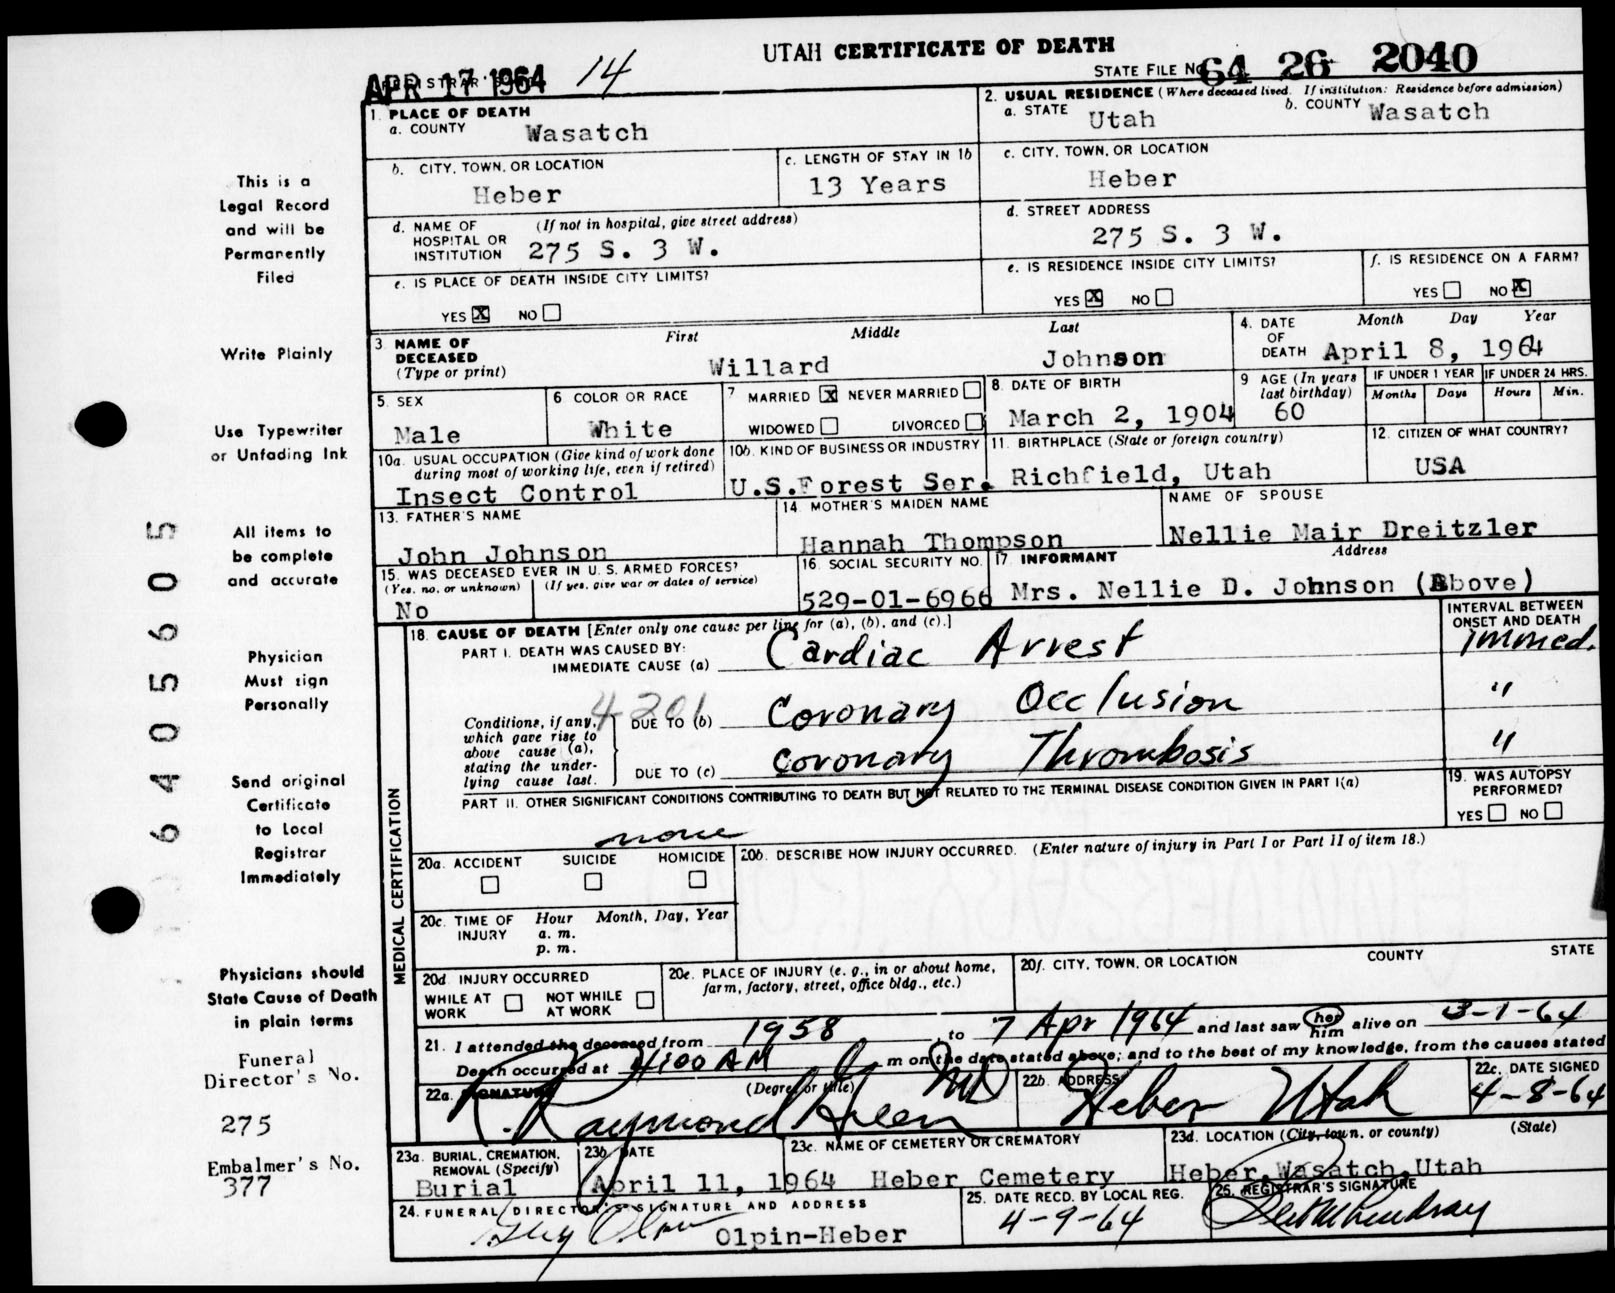 UTAH CERTIFICATE OF DEATH
APR 17 1964 14 STATE FILE No 64 26 2040
1. PLACE OF DEATH
a. COUNTY Wasatch
2. USUAL RESIDENCE (Where deceased lived. If institution: Residence before admission)
a. STATE Utah b. COUNTY Wasatch
b. CITY, TOWN, OR LOCATION Heber
c. LENGTH OF STAY IN 1b 13 Years
c. CITY, TOWN, OR LOCATION Heber
d. NAME OF HOSPITAL OR INSTITUTION (If not in hospital, give street address) 275 S. 3 W.
d. STREET ADDRESS 275 S. 3 W.
e. IS PLACE OF DEATH INSIDE CITY LIMITS?
YES X NO
e. IS RESIDENCE INSIDE CITY LIMITS?
YES X NO
f. IS RESIDENCE ON A FARM?
YES NO X
3. NAME OF DECEASED (Type or print) First Middle Last
Willard Johnson
4. DATE OF DEATH Month Day Year
April 8, 1964
5. SEX Male
6 COLOR OR RACE White
7 MARRIED X NEVER MARRIED
WIDOWED DIVORCED
8. DATE OF BIRTH March 2, 1904
9 AGE (In years last birthday) 60
IF UNDER 1 YEAR Months Days
IF UNDER 24 HRS. Hours Min.
10a. USUAL OCCUPATION (Give kind of work done during most of working life, even if retired)
Insect Control
10b. KIND OF BUSINESS OR INDUSTRY
U.S.Forest Ser.
11. BIRTHPLACE (State or foreign country)
Richfield, Utah
12. CITIZEN OF WHAT COUNTRY?
USA
13. FATHER'S NAME
John Johnson
14. MOTHER'S MAIDEN NAME
Hannah Thompson
NAME OF SPOUSE
Nellie Mair Dreitzler
15. WAS DECEASED EVER IN U. S. ARMED FORCES?
(Yes, no, or unknown) (If yes, give war or dates of service)
No
16. SOCIAL SECURITY NO.
529-01-6966
17. INFORMANT Address
Mrs. Nellie D. Johnson (Above)
MEDICAL CERTIFICATION
18. CAUSE OF DEATH [Enter only one cause per line for (a), (b), and (c).]
INTERVAL BETWEEN ONSET AND DEATH
PART I. DEATH WAS CAUSED BY:
IMMEDIATE CAUSE (a) Cardiac Arrest immed.
4201
Conditions, if any, which gave rise to above cause (a), stating the underlying cause last.
DUE TO (b) Coronary Occlusion "
DUE TO (c) Coronary Thrombosis "
PART II. OTHER SIGNIFICANT CONDITIONS CONTRIBUTING TO DEATH BUT NOT RELATED TO THE TERMINAL DISEASE CONDITION GIVEN IN PART I(a)
none
19. WAS AUTOPSY PERFORMED?
YES NO
20a. ACCIDENT SUICIDE HOMICIDE
20b. DESCRIBE HOW INJURY OCCURRED. (Enter nature of injury in Part I or Part II of item 18.)
20c. TIME OF INJURY Hour Month, Day, Year
a. m.
p. m.
20d. INJURY OCCURRED
WHILE AT WORK NOT WHILE AT WORK
20e. PLACE OF INJURY (e. g., in or about home, farm, factory, street, office bldg., etc.)
20f. CITY, TOWN, OR LOCATION COUNTY STATE
21. I attended the deceased from 1958 to 7 Apr 1964 and last saw her him alive on 3-1-64
Death occurred at 4:00 AM m on the date stated above; and to the best of my knowledge, from the causes stated
22a. SIGNATURE (Degree or title)
R. Raymond Green MD
22b. ADDRESS Heber Utah
22c. DATE SIGNED 4-8-64
23a. BURIAL, CREMATION, REMOVAL (Specify)
Burial
23b DATE
April 11, 1964
23c. NAME OF CEMETERY OR CREMATORY
Heber Cemetery
23d. LOCATION (City, town, or county) (State)
Heber, Wasatch, Utah
24. FUNERAL DIRECTOR'S SIGNATURE AND ADDRESS
Olpin-Heber
25. DATE RECD. BY LOCAL REG.
4-9-64
26. REGISTRAR'S SIGNATURE
This is a
Legal Record
and will be
Permanently
Filed
Write Plainly
Use Typewriter
or Unfading Ink
All items to
be complete
and accurate
Physician
Must sign
Personally
Send original
Certificate
to Local
Registrar
Immediately
Physicians should
State Cause of Death
in plain terms
Funeral
Director's No.
275
Embalmer's No.
377
6405605